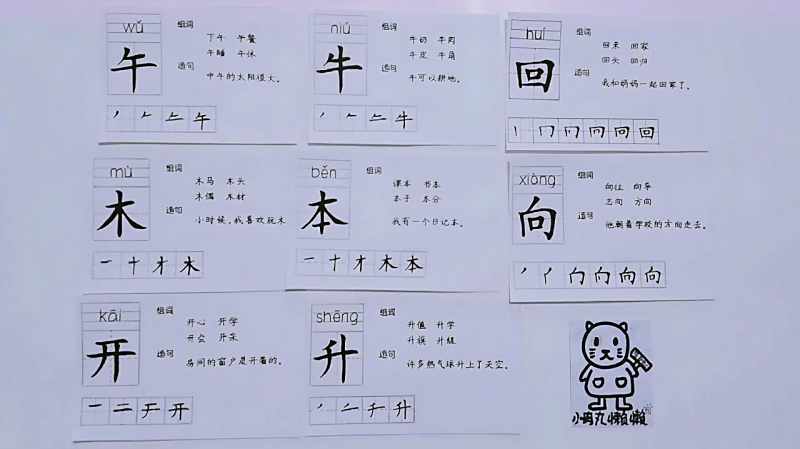 wǔ
组词
下午 午餐
午
午睡 午休
造句
中午的太阳很大。
niú
组词
牛奶 牛肉
牛
牛皮 牛角
造句
牛可以耕地。
huí
组词
回来 回家
回
回头 回归
造句
我和妈妈一起回家了。
mù
组词
木马 木头
木
木偶 木材
造句
小时候,我喜欢玩木
běn
组词
课本 书本
本
本子 本分
造句
我有一个日记本。
xiàng
组词
向往 向导
向
志向 方向
造句
他朝着学校的方向走去。
kāi
组词
开心 开学
开
开会 开朵
造句
房间的窗户是开着的。
shēng
组词
升值 升学
升
升旗 升级
造句
许多热气球升上了天空。